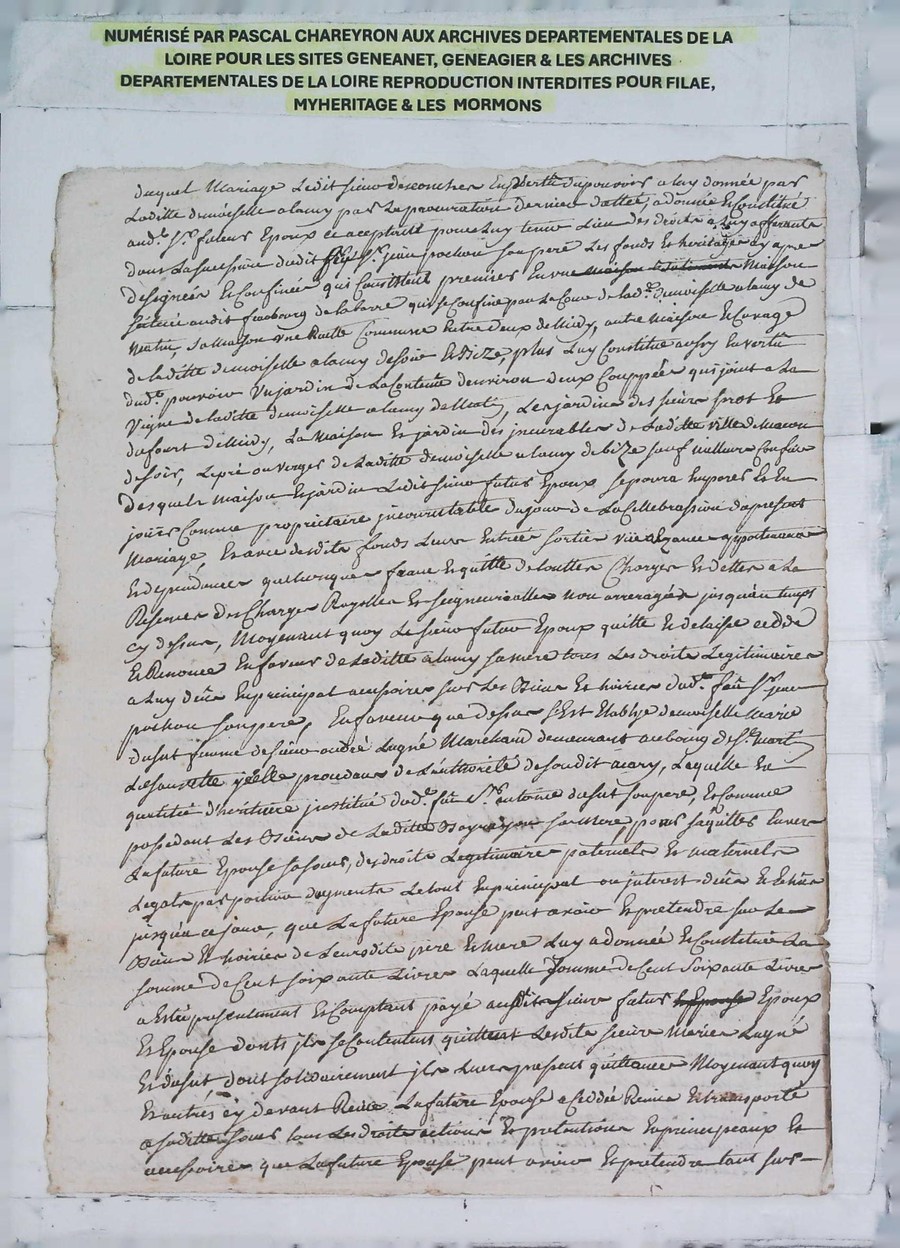 NUMÉRISÉ PAR PASCAL CHAREYRON AUX ARCHIVES DEPARTEMENTALES DE LA
LOIRE POUR LES SITES GENEANET, GENEAGIER & LES ARCHIVES
DEPARTEMENTALES DE LA LOIRE REPRODUCTION INTERDITES POUR FILAE,
MYHERITAGE & LES MORMONS
duquel Mariage Ledit sieur descombes En vertu du pouvoir a luy donnée par
Laditte demoiselle alamy par La procuration dernier dattée, a donnée Et Constitué
aud.t S.r futeur Epoux ce acceptant pour Luy tenir Lieu des droits a Luy afferants
dans La succession dudit S.r jean pochon son pere Les fonds Et heritages cy apres
designées Et Confinée qui Consistent premier En une Maison
scituée audit fauxbourg de la barre qui se Confine par La Cour de lad.e demoiselle alamy de
Matin, sa Maison une Ruelle Commune Entre deux de Midy, autre Maison Et
de laditte demoiselle alamy de soir Et Bize, plus Luy Constitue aussy En vertu
dud.t pouvoir Un jardin de La Contenue d'environ deux Couppées qui joint a La
Vigne de laditte demoiselle alamy de Matin, Les jardins des sieurs Et
dufour de Midy, La Maison Et jardin des incurables de Laditte ville de Macon
de soir, Le pré ou verger de Laditte demoiselle alamy de bize sauf meilleurs Confins
Desquels Maison Et jardin Ledit sieur futur Epoux se poura Emparer Et En
jouir Comme propriétaire incommutable du jour de La Cellebrassion du present
Mariage, Et avec desdits fonds Leurs Entrée sortie appartenances
Et dependances quelconques franc Et quitte de touttes Charges Et dettes a La
Reserve des Charges Royalles Et seigneurialles non arreragée jusqu'au temps
cy dessus, Moyenant quoy Le sieur futur Epoux quitte Et delaisse cedde
Et Renonce En faveur de Laditte alamy sa mere tous Les droits Legitimaires
a Luy deüs En principal accessoires sur Les Biens Et hoiries dud.t feu S.r jean
pochon son pere, En faveur que dessus s'Est Etablye demoiselle Marie
dusut femme de sieur andré Lagné Marchand demeurant au bourg de S.t
Lad procedant de L'authorité de son dit mary, Laquelle En
quallité d'heritiere instituée dud.t feu S.r antoine dusut son pere, Et Comme
possedant Les Biens de Laditte sa Mere, pour s'aquitter Envers
La future Epouse sa soeur, des droits Legitimaires paternels Et maternels
Legats par portion augments Le tout En principal ou interest deüs Et
jusqu'a ce jour, que La future Epouse peut avoir Et pretendre sur Les
Biens Et hoiries de Leursdits pere Et mere Luy a donnée Et Constituée La
somme de Cent soixante Livres Laquelle somme de Cent soixante Livres
a Esté presentement Et Comptant payé audit sieur futur Epoux
Et Epouse dont ils se Contentent quittent Lesdits sieurs Mariés Lagné
Et dusut dont solidairement ils Leurs passent quittance Moyenant quoy
Et autres cy devant La future Epouse a Ceddée Remise Et transporté
a saditte soeur tous Les droits actions Et pretentions En principaux Et
accessoires que La future Epouse peut avoir Et pretendre tant sur